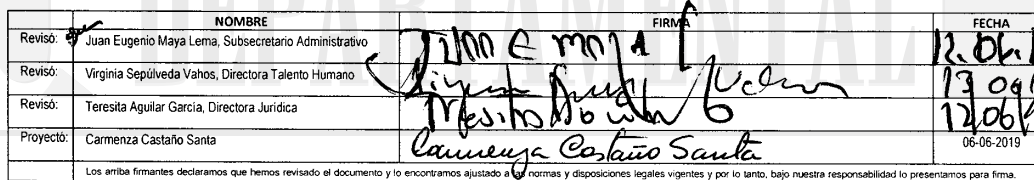 DEPARTAMENTAL
NOMBRE FIRMA FECHA
Revisó: Juan Eugenio Maya Lema, Subsecretario Administrativo 12.06.
Revisó: Virginia Sepúlveda Vahos, Directora Talento Humano 13 06
Revisó: Teresita Aguilar García, Directora Jurídica 12 06
Proyectó: Carmenza Castaño Santa Carmenza Castaño Santa 06-06-2019
Los arriba firmantes declaramos que hemos revisado el documento y lo encontramos ajustado a normas y disposiciones legales vigentes y por lo tanto, bajo nuestra responsabilidad lo presentamos para firma.